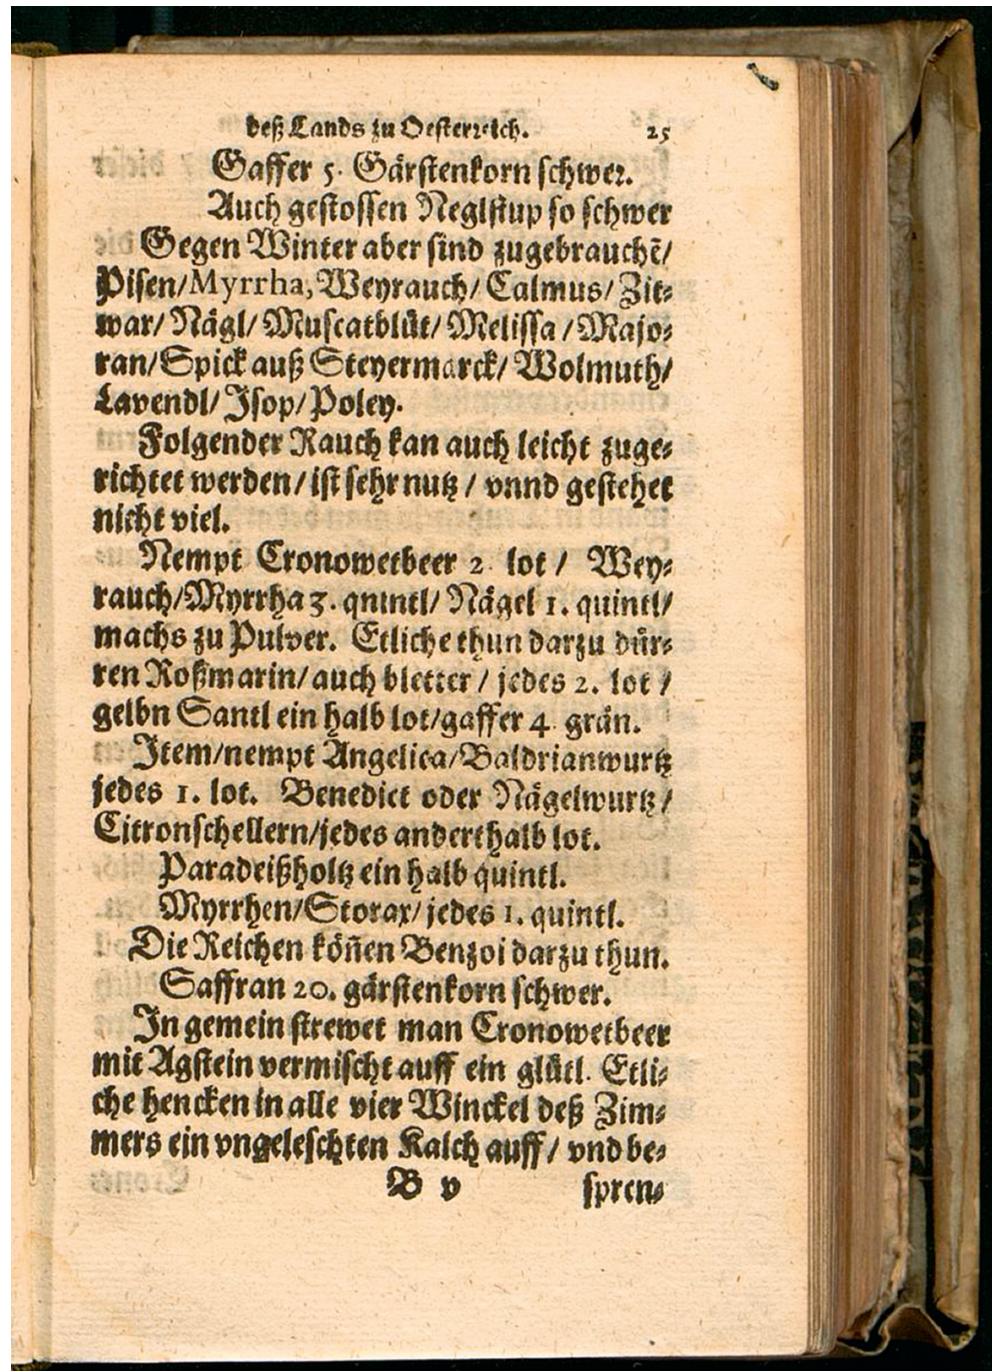 deß Lands zu Oesterreich. 25
Gaffer 5. Gärstenkorn schwer.
Auch gestossen Neglstup so schwer
Gegen Winter aber sind zugebrauchẽ/
Pisen/Myrrha, Weyrauch/ Calmus/ Zit⸗
war/ Nägl/ Muscatblüt/ Melissa /Majo⸗
ran/Spick auß Steyermarck/ Wolmuth/
Lavendl/ Isop/Poley.
Folgender Rauch kan auch leicht zuge⸗
richtet werden/ist sehr nutz / vnnd gestehet
nicht viel.
Nempt Cronowetbeer 2 lot / Wey⸗
rauch/Myrrha 3. qnintl/ Nägel 1. quintl/
machs zu Pulver. Etliche thun darzu dür⸗
ren Roßmarin/auch bletter / jedes 2. lot /
gelbn Santl ein halb lot/gaffer 4 grän.
Item/nempt Angelica/Baldrianwurtz
jedes 1. lot. Benedict oder Nägelwurtz/
Citronschellern/jedes anderthalb lot.
Paradeißholtz ein halb quintl.
Myrrhen/Storax/jedes 1. quintl.
Die Reichen köñen Benzoi darzu thun.
Saffran 20. gärstenkorn schwer.
In gemein strewet man Cronowetbeer
mit Agstein vermischt auff ein glütl. Etli⸗
che hencken in alle vier Winckel deß Zim⸗
mers ein vngeleschten Kalch auff/ vnd be⸗
B v spren⸗